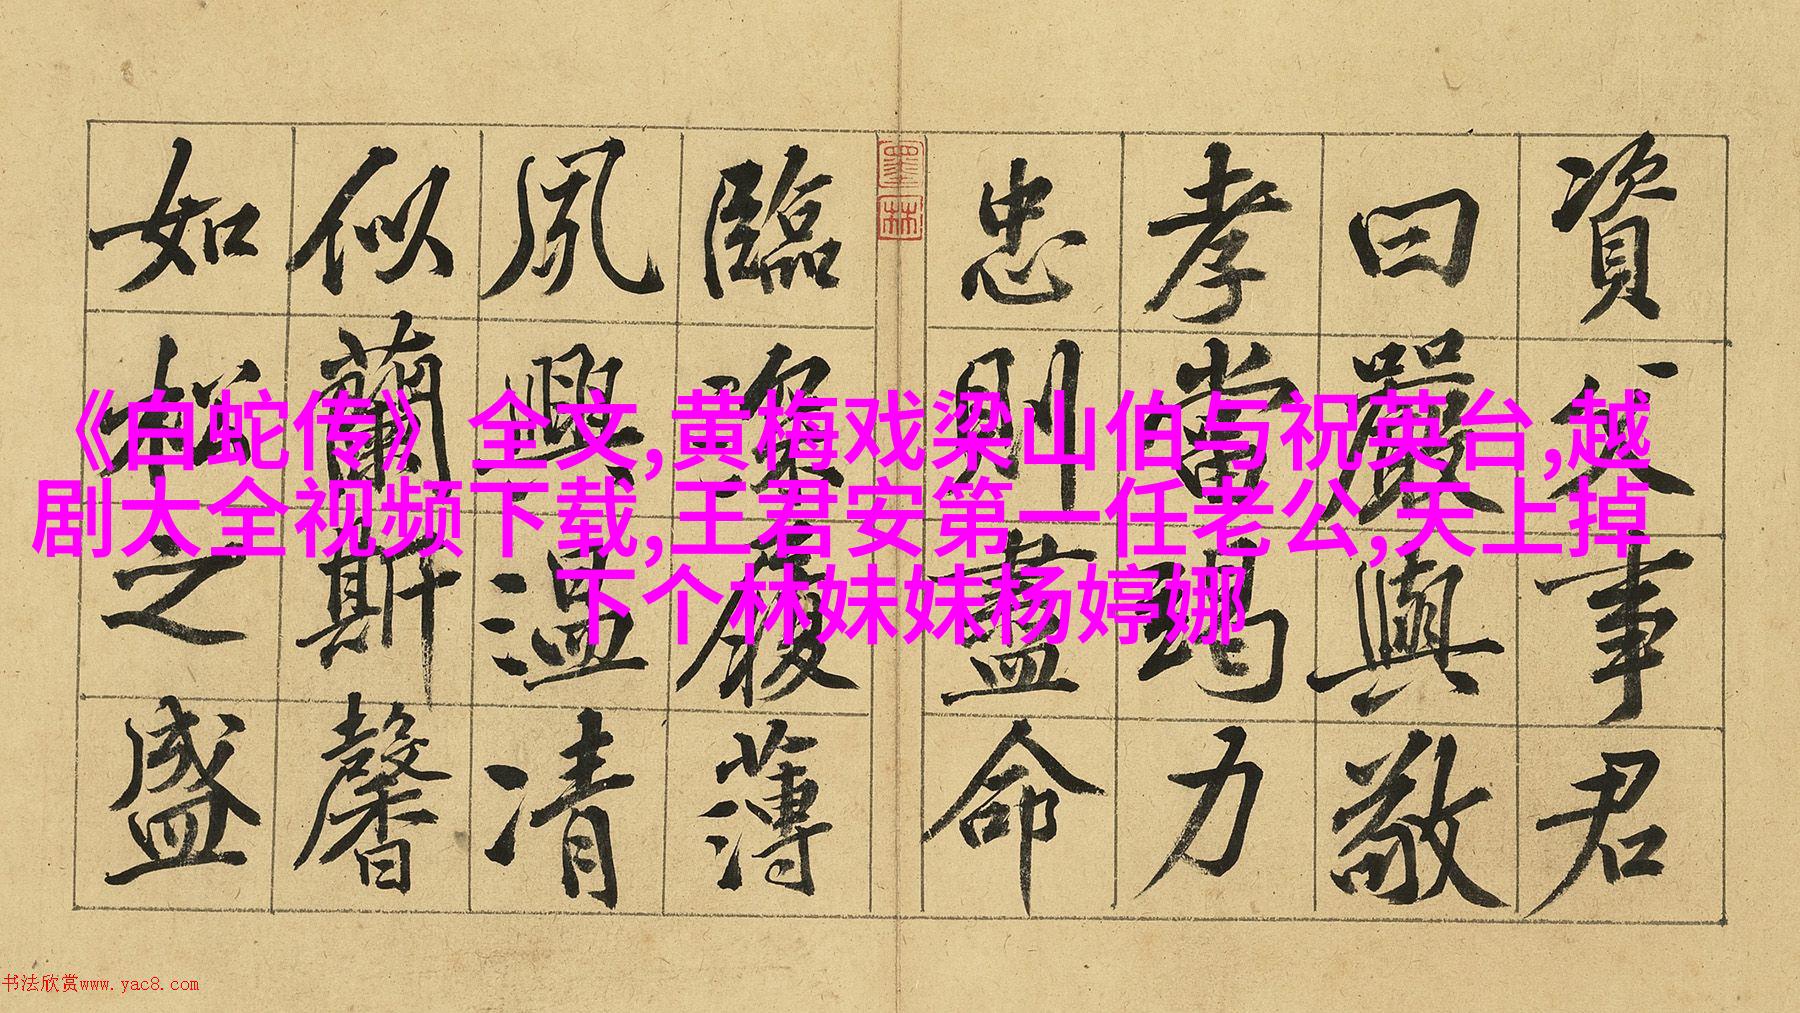 資父事君
曰嚴與敬
孝當竭力
忠則盡命
墨林
臨深履薄
夙興溫凊
似蘭斯馨
如松之盛
《白蛇传》全文,黄梅戏梁山伯与祝英台,越
剧大全视频下载,王君安第一任老公,天上掉
下个林妹妹杨婷娜
书法欣赏www.yac8.com